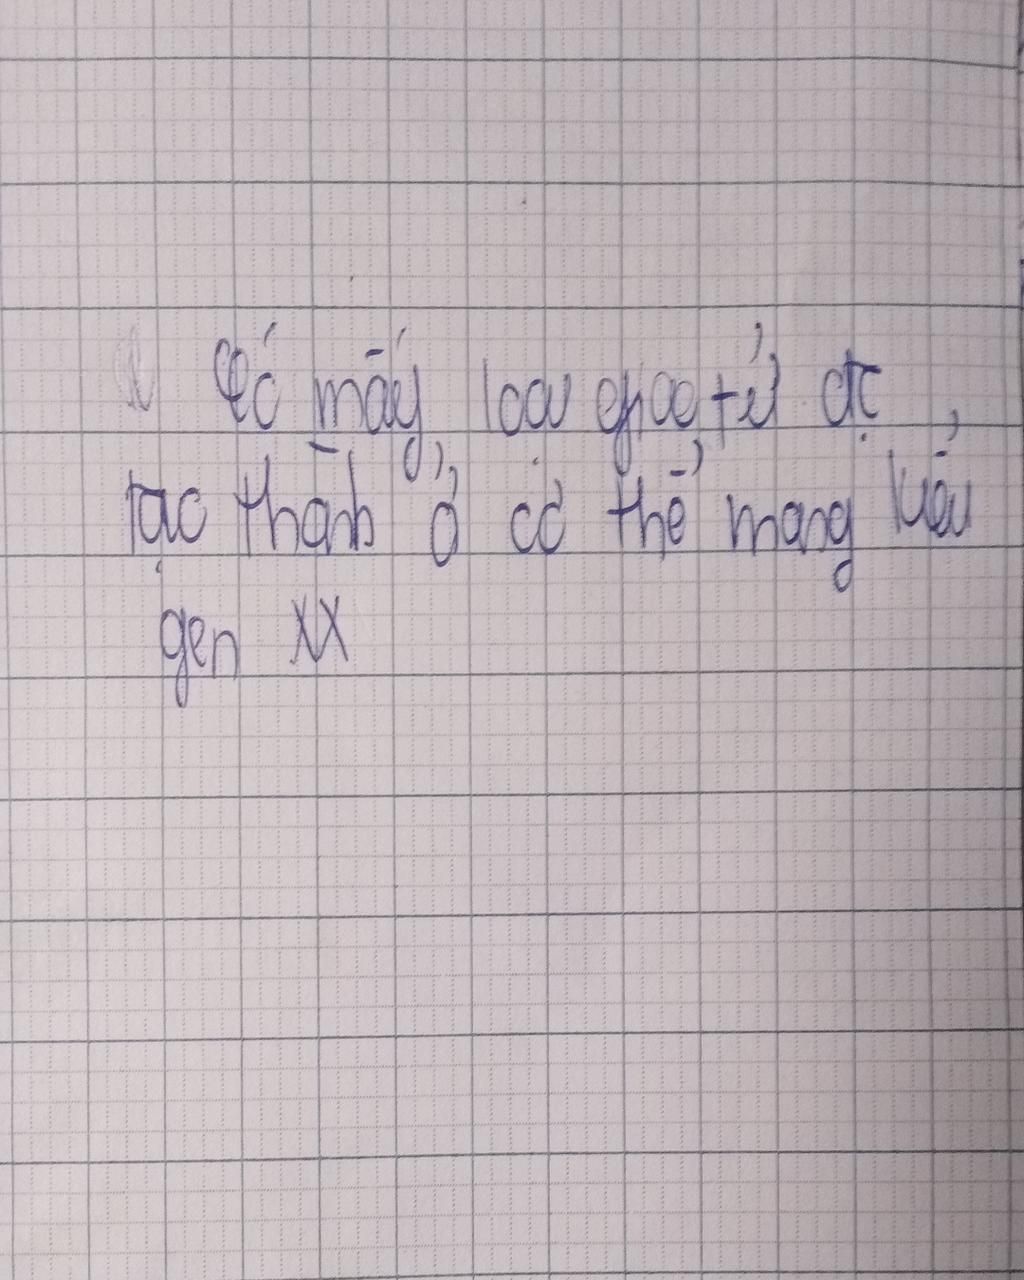 Có mấy loại giao tử đc
tạo thành ở cơ thể mang kiểu
gen XX